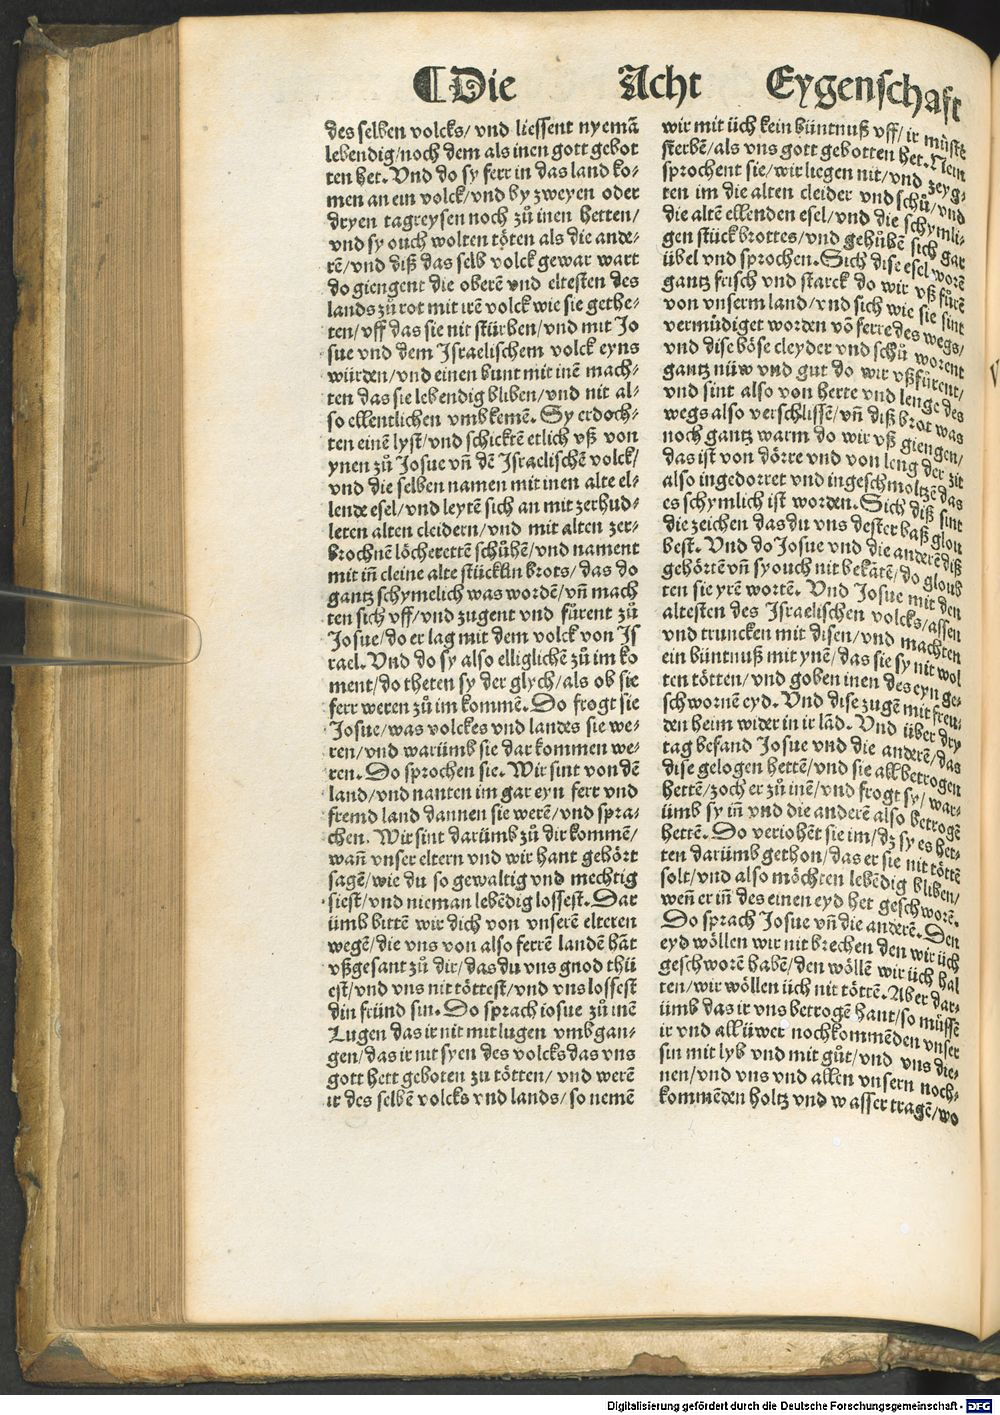 ¶Die Acht Eygenschaft
des selben volcks/ vnd liessent nyemā
lebendig/noch dem als inen gott gebot
ten het. Vnd do sy ferr in das land ko-
men an ein volck/vnd by zweyen oder
dryen tagreysen noch zů inen hetten/
vnd sy ouch wolten töten als die ande-
rē/vnd diß das selb volck gewar wart
do giengent die oberē vnd eltesten des
lands zů rot mit irē volck wie sie gethe-
ten/vff das sie nit stürben/vnd mit Jo
sue vnd dem Israelischem volck eyns
würden/vnd einen bunt mit inē mach-
ten das sie lebendig bliben/vnd nit al-
so ellentlichen vmbkemē. Sy erdoch-
ten einē lyst/vnd schicktē etlich vß von
ynen zů Josue vn̄ dē Israelischē volck/
vnd die selben namen mit inen alte el-
lende esel/vnd leytē sich an mit zerhud-
leten alten cleidern/vnd mit alten zer-
brochnē löcherettē schůhē/vnd nament
mit in̄ cleine alte stücklin brots/das do
gantz schymelich was wordē/vn̄ mach
ten sich vff/vnd zugent vnd fůrent zů
Josue/do er lag mit dem volck von Is
rael. Vnd do sy also elliglichē zů im ko
ment/do theten sy der glych/als ob sie
ferr weren zů im kommē. Do frogt sie
Josue/was volckes vnd landes sie we-
ren/vnd warümb sie dar kommen we-
ren. Do sprochen sie. Wir sint von dē
land/vnd nanten im gar eyn ferr vnd
fremd land dannen sie werē/vnd spra-
chen. Wir sint darümb zů dir kommē/
wan̄ vnser eltern vnd wir hant gehört
sagē/wie du so gewaltig vnd mechtig
siest/vnd nieman lebēdig lossest. Dar
ümb bittē wir dich von vnserē elteren
wegē/die vns von also ferrē landē hāt
vßgesant zů dir/das du vns gnod thü
est/vnd vns nit töttest/vnd vns lossest
din fründ sin. Do sprach iosue zů inē
Lugen das ir nit mit lugen vmbgan-
gen/das ir nit syen des volcks das vns
gott hett geboten zu tötten/ vnd werē
ir des selbē volcks vnd lands/so nemē
wir mit üch kein büntnuß vff/ir můste
sterbē/als vns gott gebotten het. Nein
sprochent sie/wir liegen nit/vnd zeyg-
ten im die alten cleider vnd schů/vnd
die altē ellenden esel/vnd die schymli-
gen stück brottes/vnd gehůbē sich gar
übel vnd sprochen. Sich dise esel worē
gantz frisch vnd starck do wir vß fůrē
von vnserm land/vnd sich wie sie sint
vermüdiget worden vō ferre des wegs/
vnd dise böse cleyder vnd schů worent
gantz nüw vnd gut do wir vßfůrent/
vnd sint also von herte vnd lenge des
wegs also verschlissē/vn̄ diß brot was
noch gantz warm do wir vß giengen/
das ist von dörre vnd von leng der zit
also ingedorret vnd ingeschmoltzē das
es schymlich ist worden. Sich diß sint
die zeichen das du vns dester baß glou
best. Vnd do Josue vnd die anderē diß
gehörtē vn̄ sy ouch nit bekātē/do gloub
ten sie yrē wortē. Vnd Josue mit den
altesten des Israelischen volcks/assen
vnd truncken mit disen/vnd machten
ein büntnuß mit ynē/das sie sy nit wol
ten tötten/vnd goben inen des eyn ge-
schwornē eyd. Vnd dise zugē mit freu-
den heim wider in ir lād. Vnd über dry
tag befand Josue vnd die anderē/das
dise gelogen hettē/vnd sie all betrogen
hettē/zoch er zů inē/vnd frogt sy/ war-
ümb sy in̄ vnd die anderē also betrogē
hettē. Do veriohēt sie im/dz sy es het-
ten darümb gethon/das er sie nit töttē
solt/vnd also möchten lebēdig bliben/
wen̄ er in̄ des einen eyd het geschworē.
Do sprach Josue vn̄ die anderē. Den
eyd wöllen wir nit brechen den wir üch
geschworē haben/den wöllē wir üch hal
ten/wir wöllen üch nit töttē. Aber dar-
ümb das ir vns betrogē hant/so müssē
ir vnd all üwer nochkommēden vnser
sin mit lyb vnd mit gůt/vnd vns die-
nen/vnd vns vnd allen vnsern noch-
kommēden holtz vnd wasser tragē/wo
Digitalisierung gefördert durch die Deutsche Forschungsgemeinschaft - DFG